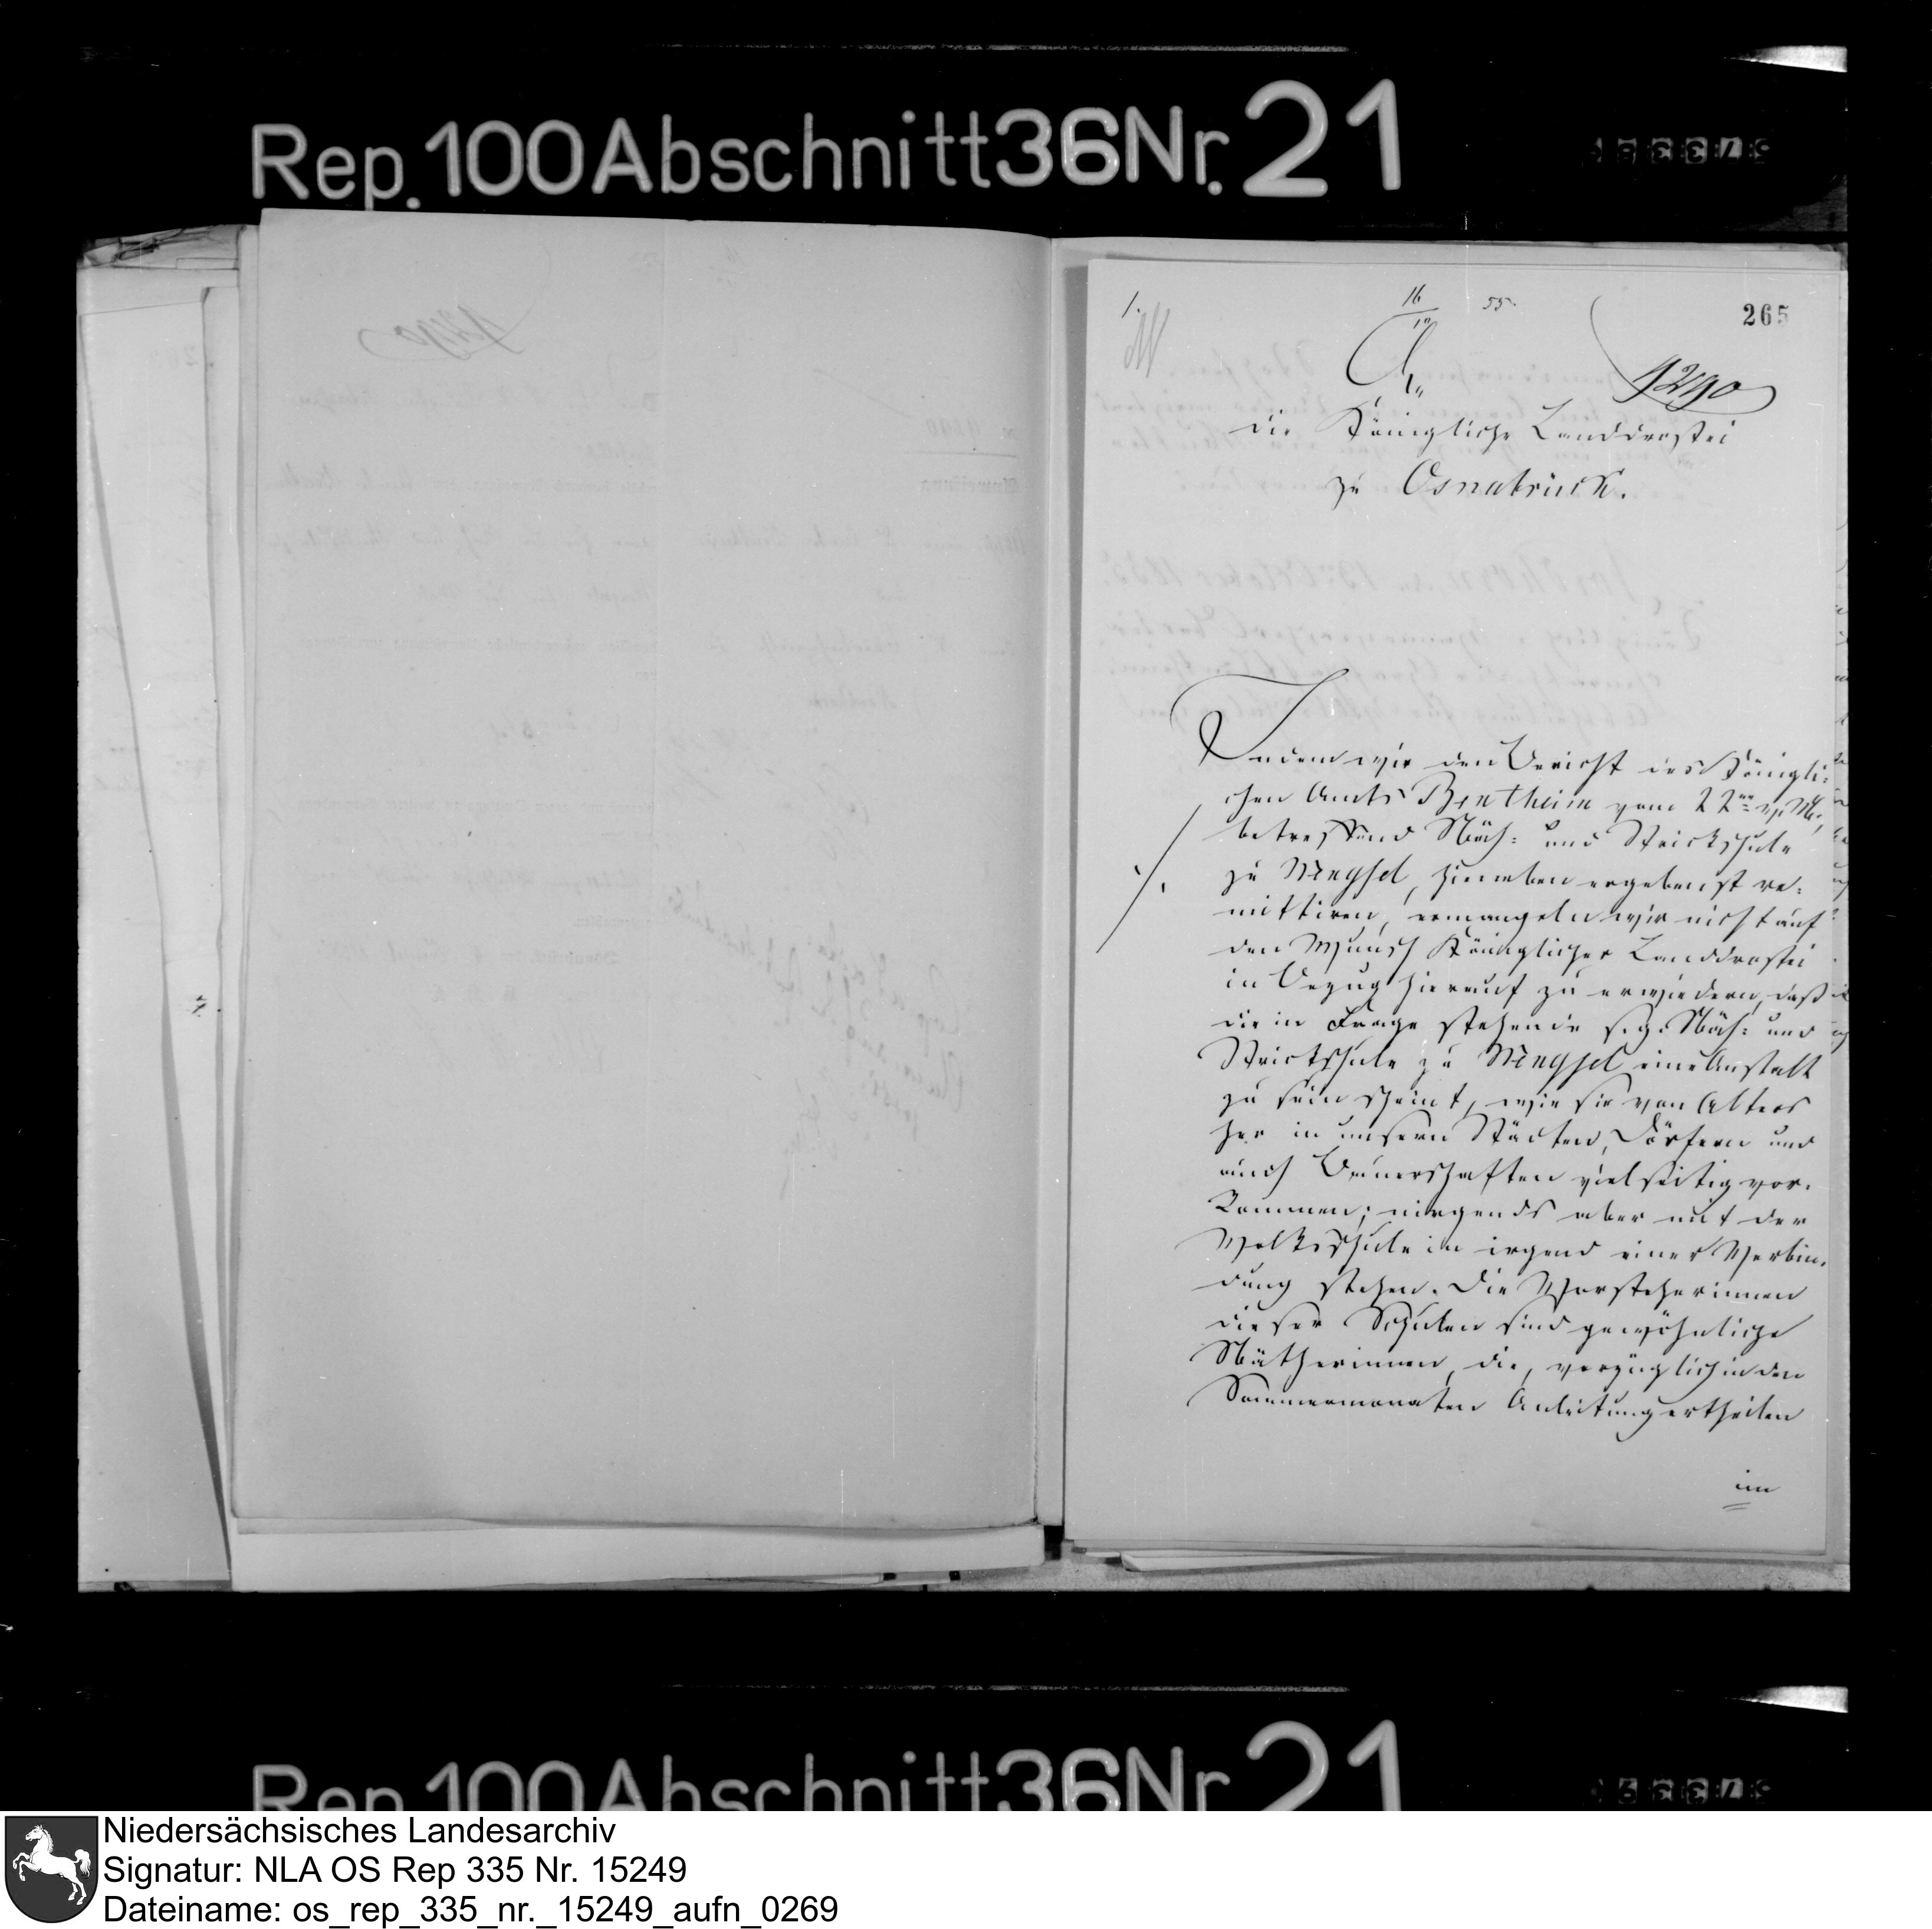 Rep. 100 Abschnitt 36 Nr. 21
1.
16/10 55.
265
An
9290
die Königliche Landdrostei
zu Osnabrück.
Indem wir den Bericht des Königli-
chen Amts Bentheim vom 22ten v. Mts,
betreffend Näh- und Strickschule
zu Wengsel, hieneben ergebenst re-
mittiren, ermangeln wir nicht auf
den Wunsch Königlicher Landdrostei
in Bezug hierauf zu erwiedern, daß
die in Frage stehende s. g. Näh- und
Strickschule zu Wengsel eine Anstalt
zu sein scheint, wie sie von Alters
her in unsern Städten, Dörfern und
auch Bauerschaften vielseitig vor-
kommen; nirgends aber mit der
Volksschule in irgend einer Verbin-
dung stehen. Die Vorsteherinnen
dieser Schulen sind gewöhnliche
Nätherinnen, die, vorzüglich in den
Sommermonaten Anleitung ertheilen
im
Rep. 100 Abschnitt 36 Nr. 21
Niedersächsisches Landesarchiv
Signatur: NLA OS Rep 335 Nr. 15249
Dateiname: os_rep_335_nr._15249_aufn_0269